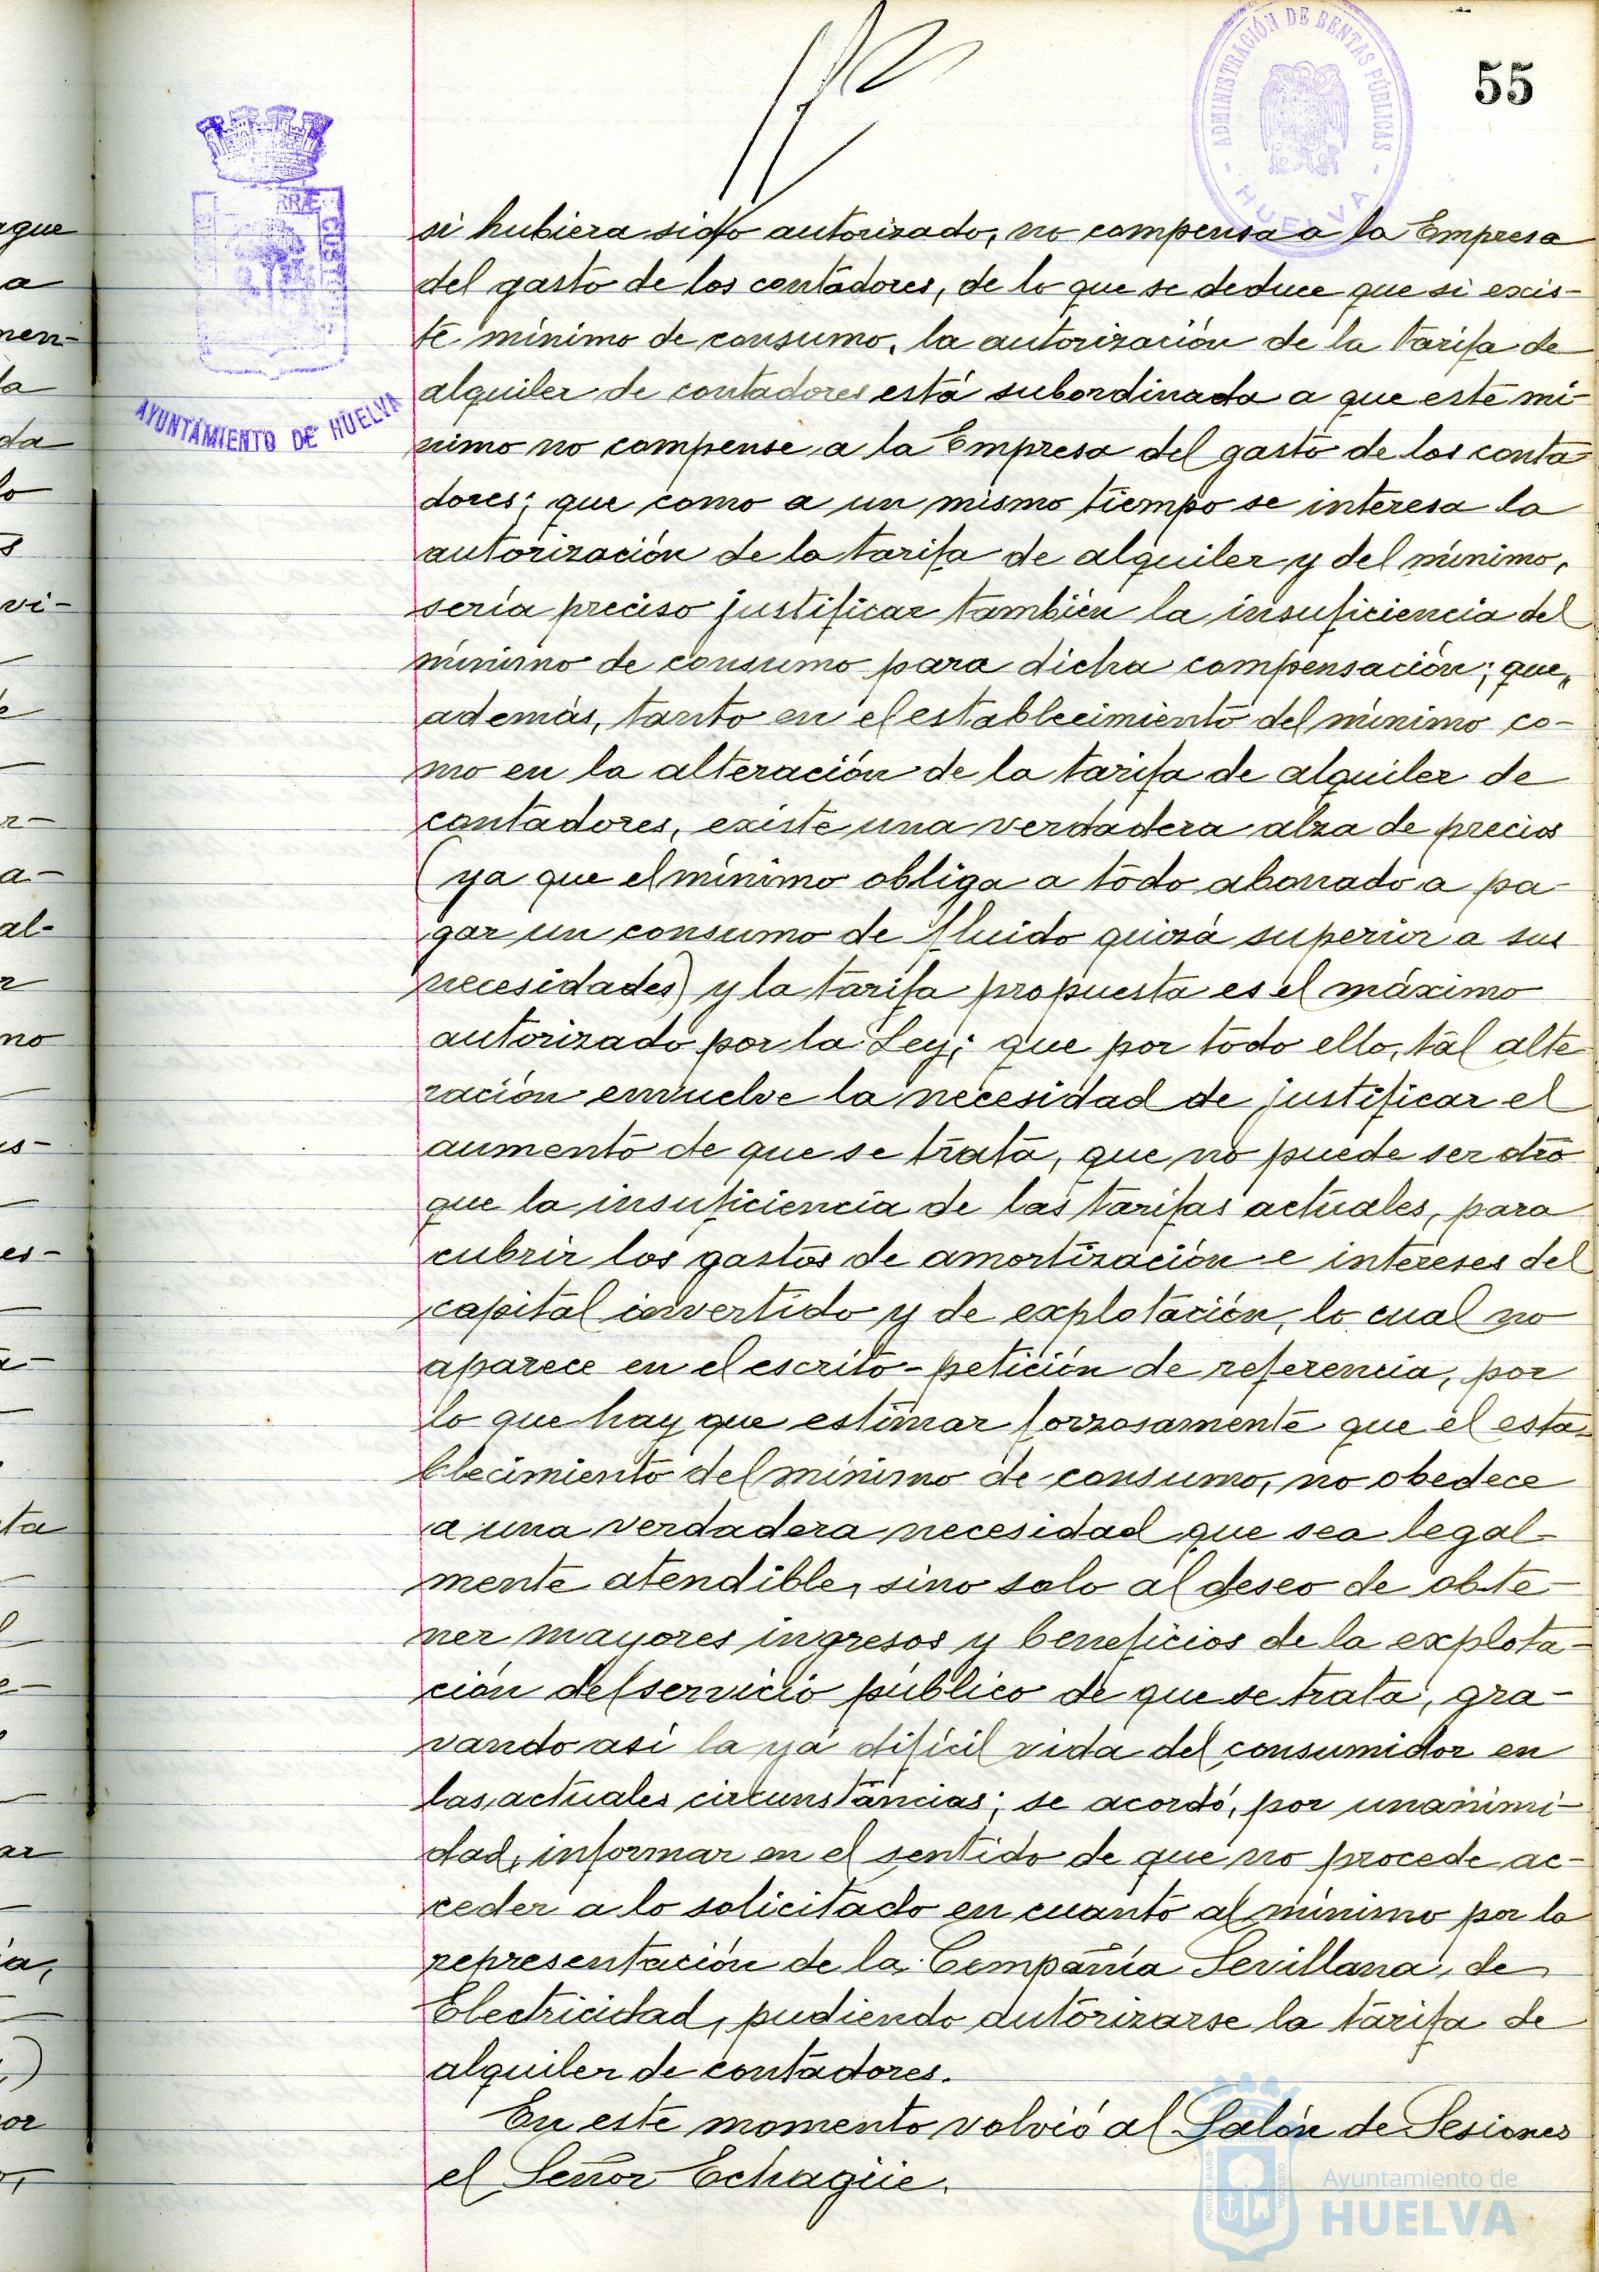 55
ADMINISTRACIÓN DE RENTAS PÚBLICAS
- HUELVA -
RRÆ
CUSTO
AYUNTAMIENTO DE HUELVA
si hubiera sido autorizado, no compensa a la Empresa
del gasto de los contadores, de lo que se deduce que si excis-
te mínimo de consumo, la autorización de la tarifa de
alquiler de contadores está subordinada a que este mí-
nimo no compense a la Empresa del gasto de los conta-
dores; que como a un mismo tiempo se interesa la
autorización de la tarifa de alquiler y del mínimo,
sería preciso justificar también la insuficiencia del
mínimo de consumo para dicha compensación; que,
además, tanto en el establecimiento del mínimo co-
mo en la alteración de la tarifa de alquiler de
contadores, existe una verdadera alza de precios
(ya que el mínimo obliga a todo abonado a pa-
gar un consumo de fluido quizá superior a sus
necesidades) y la tarifa propuesta es el máximo
autorizado por la Ley; que por todo ello, tal alte-
ración envuelve la necesidad de justificar el
aumento de que se trata, que no puede ser otro
que la insuficiencia de las tarifas actuales, para
cubrir los gastos de amortización e intereses del
capital invertido y de explotación, lo cual no
aparece en el escrito-petición de referencia, por
lo que hay que estimar forzosamente que el esta-
blecimiento del mínimo de consumo, no obedece
a una verdadera necesidad que sea legal-
mente atendible, sino solo al deseo de obte-
ner mayores ingresos y beneficios de la explota-
ción del servicio público de que se trata, gra-
vando así la ya difícil vida del consumidor en
las actuales circunstancias; se acordó, por unanimi-
dad, informar en el sentido de que no procede ac-
ceder a lo solicitado en cuanto al mínimo por la
representación de la Compañía Sevillana de
Electricidad, pudiendo autorizarse la tarifa de
alquiler de contadores.
En este momento volvió al Salón de Sesiones
el Señor Echagüe.
Ayuntamiento de
HUELVA